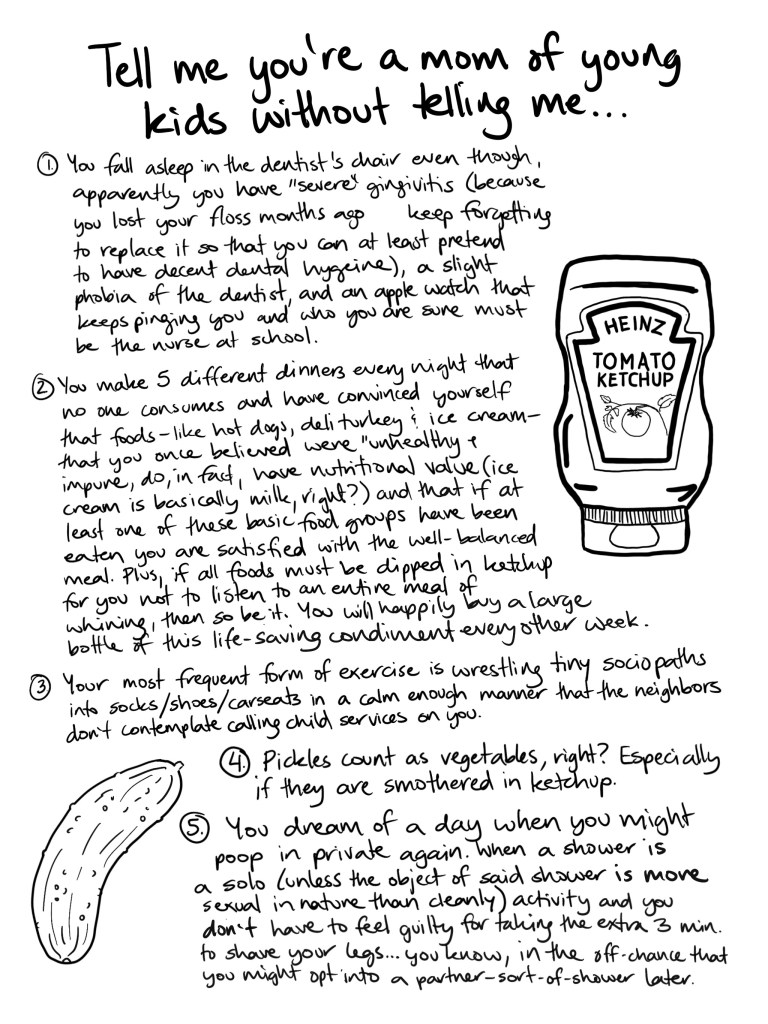 Tell me you're a mom of young
kids without telling me...
1. You fall asleep in the dentist's chair even though,
apparently you have "severe" gingivitis (because
you lost your floss months ago keep forgetting
to replace it so that you can at least pretend
to have decent dental hygeine), a slight
phobia of the dentist, and an apple watch that
keeps pinging you and who you are sure must
be the nurse at school.
HEINZ
TOMATO
KETCHUP
2 You make 5 different dinners every night that
no one consumes and have convinced yourself
that foods-like hot dogs, deli turkey & ice cream-
that you once believed were "unhealthy &
impure, do, in fact, have nutritional value (ice
cream is basically milk, right?) and that if at
least one of these basic food groups have been
eaten you are satisfied with the well-balanced
meal. Plus, if all foods must be dipped in ketchup
for you not to listen to an entire meal of
whining, then so be it. You will happily buy a large
bottle of this life-saving condiment every other week.
3 Your most frequent form of exercise is wrestling tiny sociopaths
into socks/shoes/carseats in a calm enough manner that the neighbors
don't contemplate calling child services on you.
4. Pickles count as vegetables, right? Especially
if they are smothered in ketchup.
5. You dream of a day when you might
poop in private again. When a shower is
a solo (unless the object of said shower is more
sexual in nature than cleanly) activity and you
don't have to feel guilty for taking the extra 3 min.
to shave your legs... you know, in the off-chance that
you might opt into a partner-sort-of-shower later.